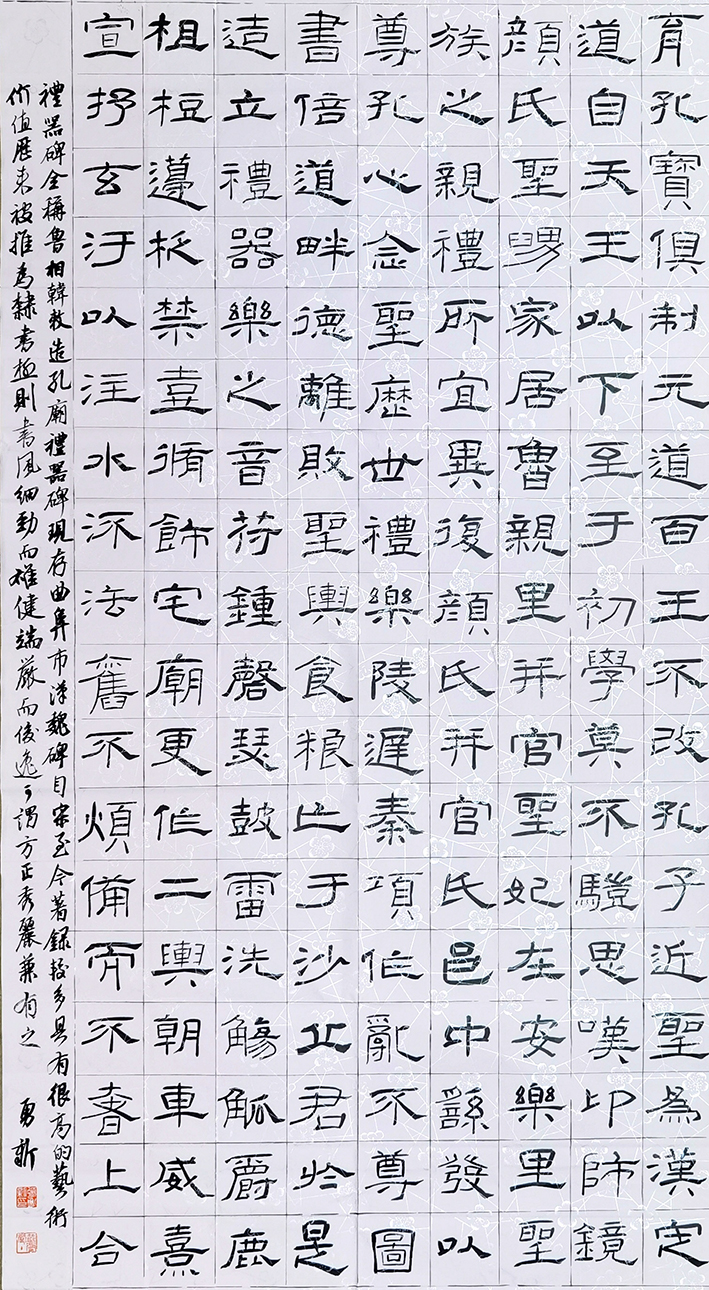 育孔寶俱制元道百王不改孔子近聖為漢定
道自天王以下至于初學莫不驥思嘆卬師鏡
顏氏聖舅家居魯親里并官聖妃在安樂里聖
族之親禮所宜異復顏氏并官氏邑中繇發以
尊孔心念聖歷世禮樂陵遲秦項作亂不尊圖
書倍道畔德離敗聖輿食粮亡于沙丘君於是
造立禮器樂之音符鍾磬瑟鼓雷洗觴觚爵鹿
柤梪籩柉禁壺脩飾宅廟更作二輿朝車威熹
宣抒玄汙以注水流法舊不煩備而不奢上合
禮器碑全稱魯相韓敕造孔廟禮器碑現存曲阜市漢魏碑自宋至今著錄較多具有很高的藝術
价值歷來被推為隸書極則書風細勁而雄健端嚴而俊逸可謂方正秀麗兼有之 勇新